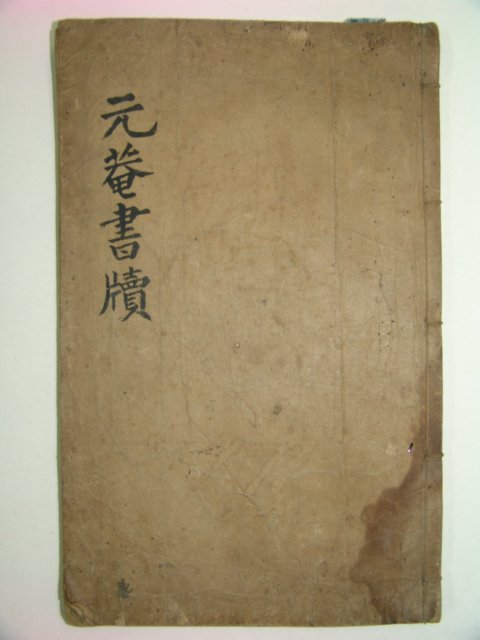 元菴書牘